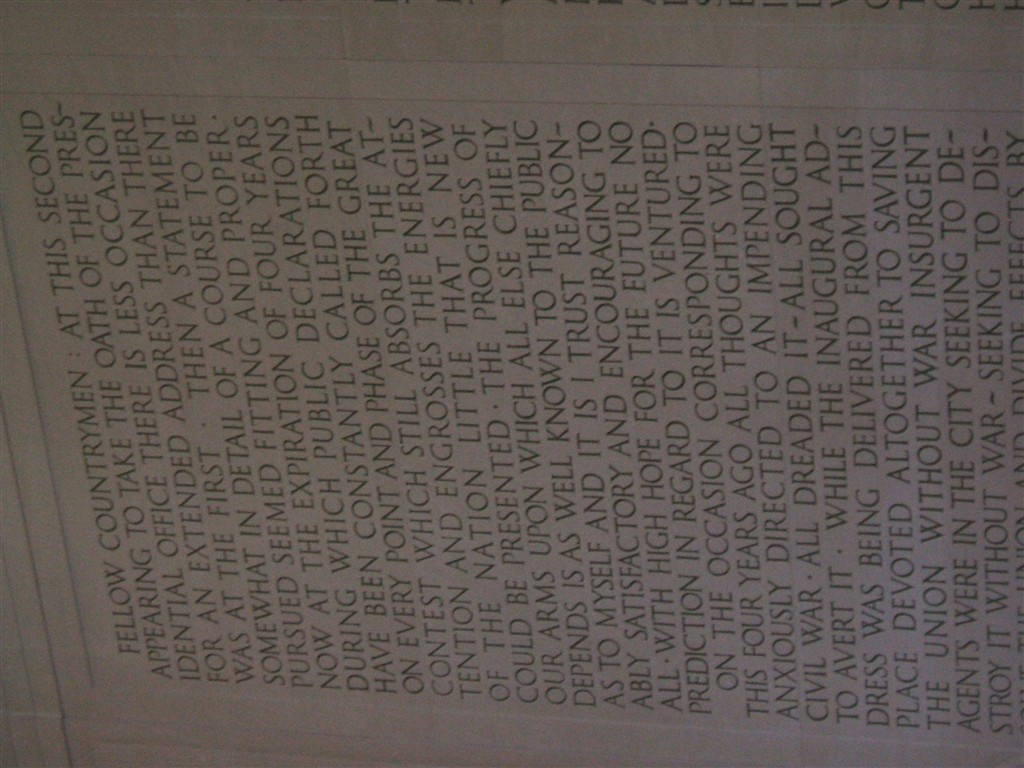 FELLOW COUNTRYMEN : AT THIS SECOND
APPEARING TO TAKE THE OATH OF THE PRES–
IDENTIAL OFFICE THERE IS LESS OCCASION
FOR AN EXTENDED ADDRESS THAN THERE
WAS AT THE FIRST · THEN A STATEMENT
SOMEWHAT IN DETAIL OF A COURSE TO BE
PURSUED SEEMED FITTING AND PROPER ·
NOW AT THE EXPIRATION OF FOUR YEARS
DURING WHICH PUBLIC DECLARATIONS
HAVE BEEN CONSTANTLY CALLED FORTH
ON EVERY POINT AND PHASE OF THE GREAT
CONTEST WHICH STILL ABSORBS THE AT–
TENTION AND ENGROSSES THE ENERGIES
OF THE NATION LITTLE THAT IS NEW
COULD BE PRESENTED · THE PROGRESS OF
OUR ARMS UPON WHICH ALL ELSE CHIEFLY
DEPENDS IS AS WELL KNOWN TO THE PUBLIC
AS TO MYSELF AND IT IS I TRUST REASON–
ABLY SATISFACTORY AND ENCOURAGING TO
ALL · WITH HIGH HOPE FOR THE EUTURE NO
PREDICTION IN REGARD TO IT IS VENTURED ·
ON THE OCCASION CORRESPONDING TO
THIS FOUR YEARS AGO ALL THOUGHTS WERE
ANXIOUSLY DIRECTED TO AN IMPENDING
CIVIL WAR · ALL DREADED IT – ALL SOUGHT
TO AVERT IT · WHILE THE INAUGURAL AD–
DRESS WAS BEING DELIVERED FROM THIS
PLACE DEVOTED ALTOGETHER TO SAVING
THE UNION WITHOUT WAR INSURGENT
AGENTS WERE IN THE CITY SEEKING TO DE–
STROY IT WITHOUT WAR – SEEKING TO DIS–
UNION AND DIVIDE EFFECTS BY